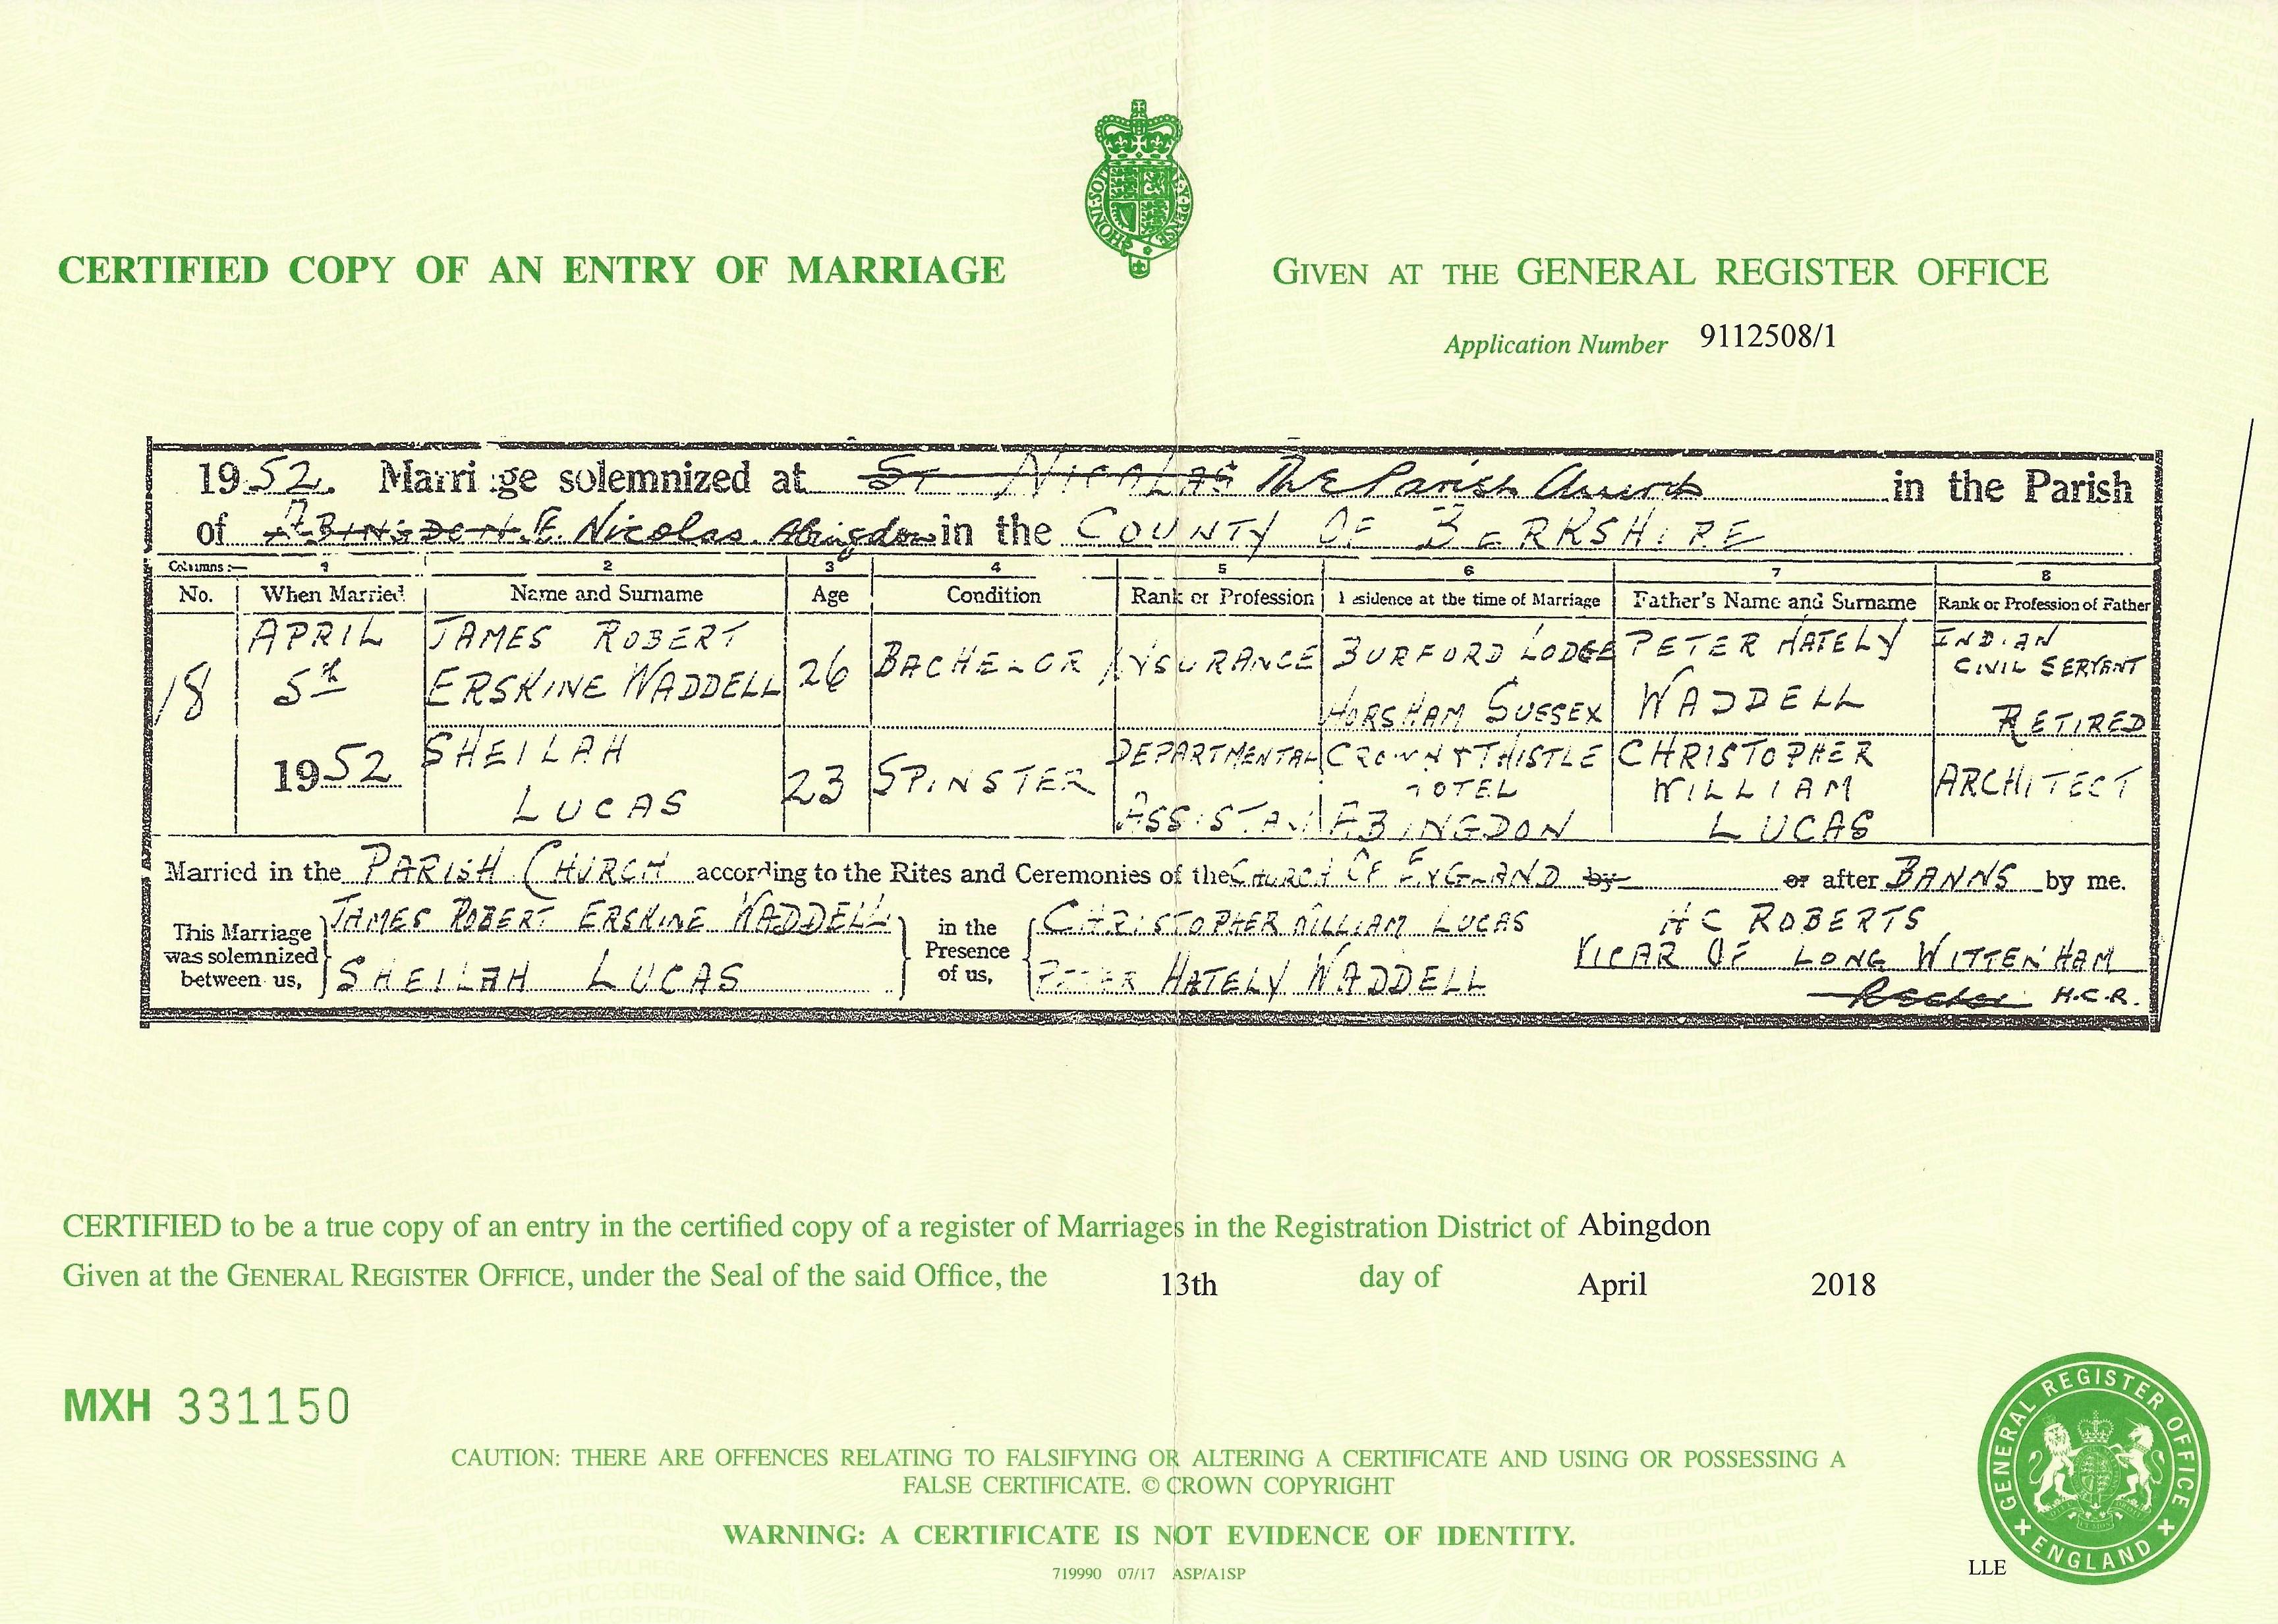 HONI·SOIT Y·PENSE
CERTIFIED COPY OF AN ENTRY OF MARRIAGE
GIVEN AT THE GENERAL REGISTER OFFICE
Application Number 9112508/1
1952. Marri ge solemnized at St Nicolas The Parish Church in the Parish
of Abingdon. St. Nicolas. Abingdon in the COUNTY OF BERKSHIRE
Columns :— 1 2 3 4 5 6 7 8
No. When Married Name and Surname Age Condition Rank or Profession esidence at the time of Marriage Father's Name and Surname Rank or Profession of Father
18 APRIL 5th JAMES ROBERT ERSKINE WADDELL 26 BACHELOR INSURANCE BURFORD LODGE HORSHAM SUSSEX PETER HATELY WADDELL INDIAN CIVIL SERVANT RETIRED
1952 SHEILAH LUCAS 23 SPINSTER DEPARTMENTAL ASSISTANT CROWN & THISTLE HOTEL ABINGDON CHRISTOPHER WILLIAM LUCAS ARCHITECT
Married in the PARISH CHURCH according to the Rites and Ceremonies of the CHURCH OF ENGLAND by or after BANNS by me.
This Marriage was solemnized between us, JAMES ROBERT ERSKINE WADDELL SHEILAH LUCAS in the Presence of us, CHRISTOPHER WILLIAM LUCAS PETER HATELY WADDELL H C ROBERTS VICAR OF LONG WITTENHAM
Rector H.C.R.
CERTIFIED to be a true copy of an entry in the certified copy of a register of Marriages in the Registration District of Abingdon
Given at the GENERAL REGISTER OFFICE, under the Seal of the said Office, the 13th day of April 2018
MXH 331150
CAUTION: THERE ARE OFFENCES RELATING TO FALSIFYING OR ALTERING A CERTIFICATE AND USING OR POSSESSING A
FALSE CERTIFICATE. © CROWN COPYRIGHT
WARNING: A CERTIFICATE IS NOT EVIDENCE OF IDENTITY.
719990 07/17 ASP/A1SP
LLE
GENERAL REGISTER OFFICE
ENGLAND